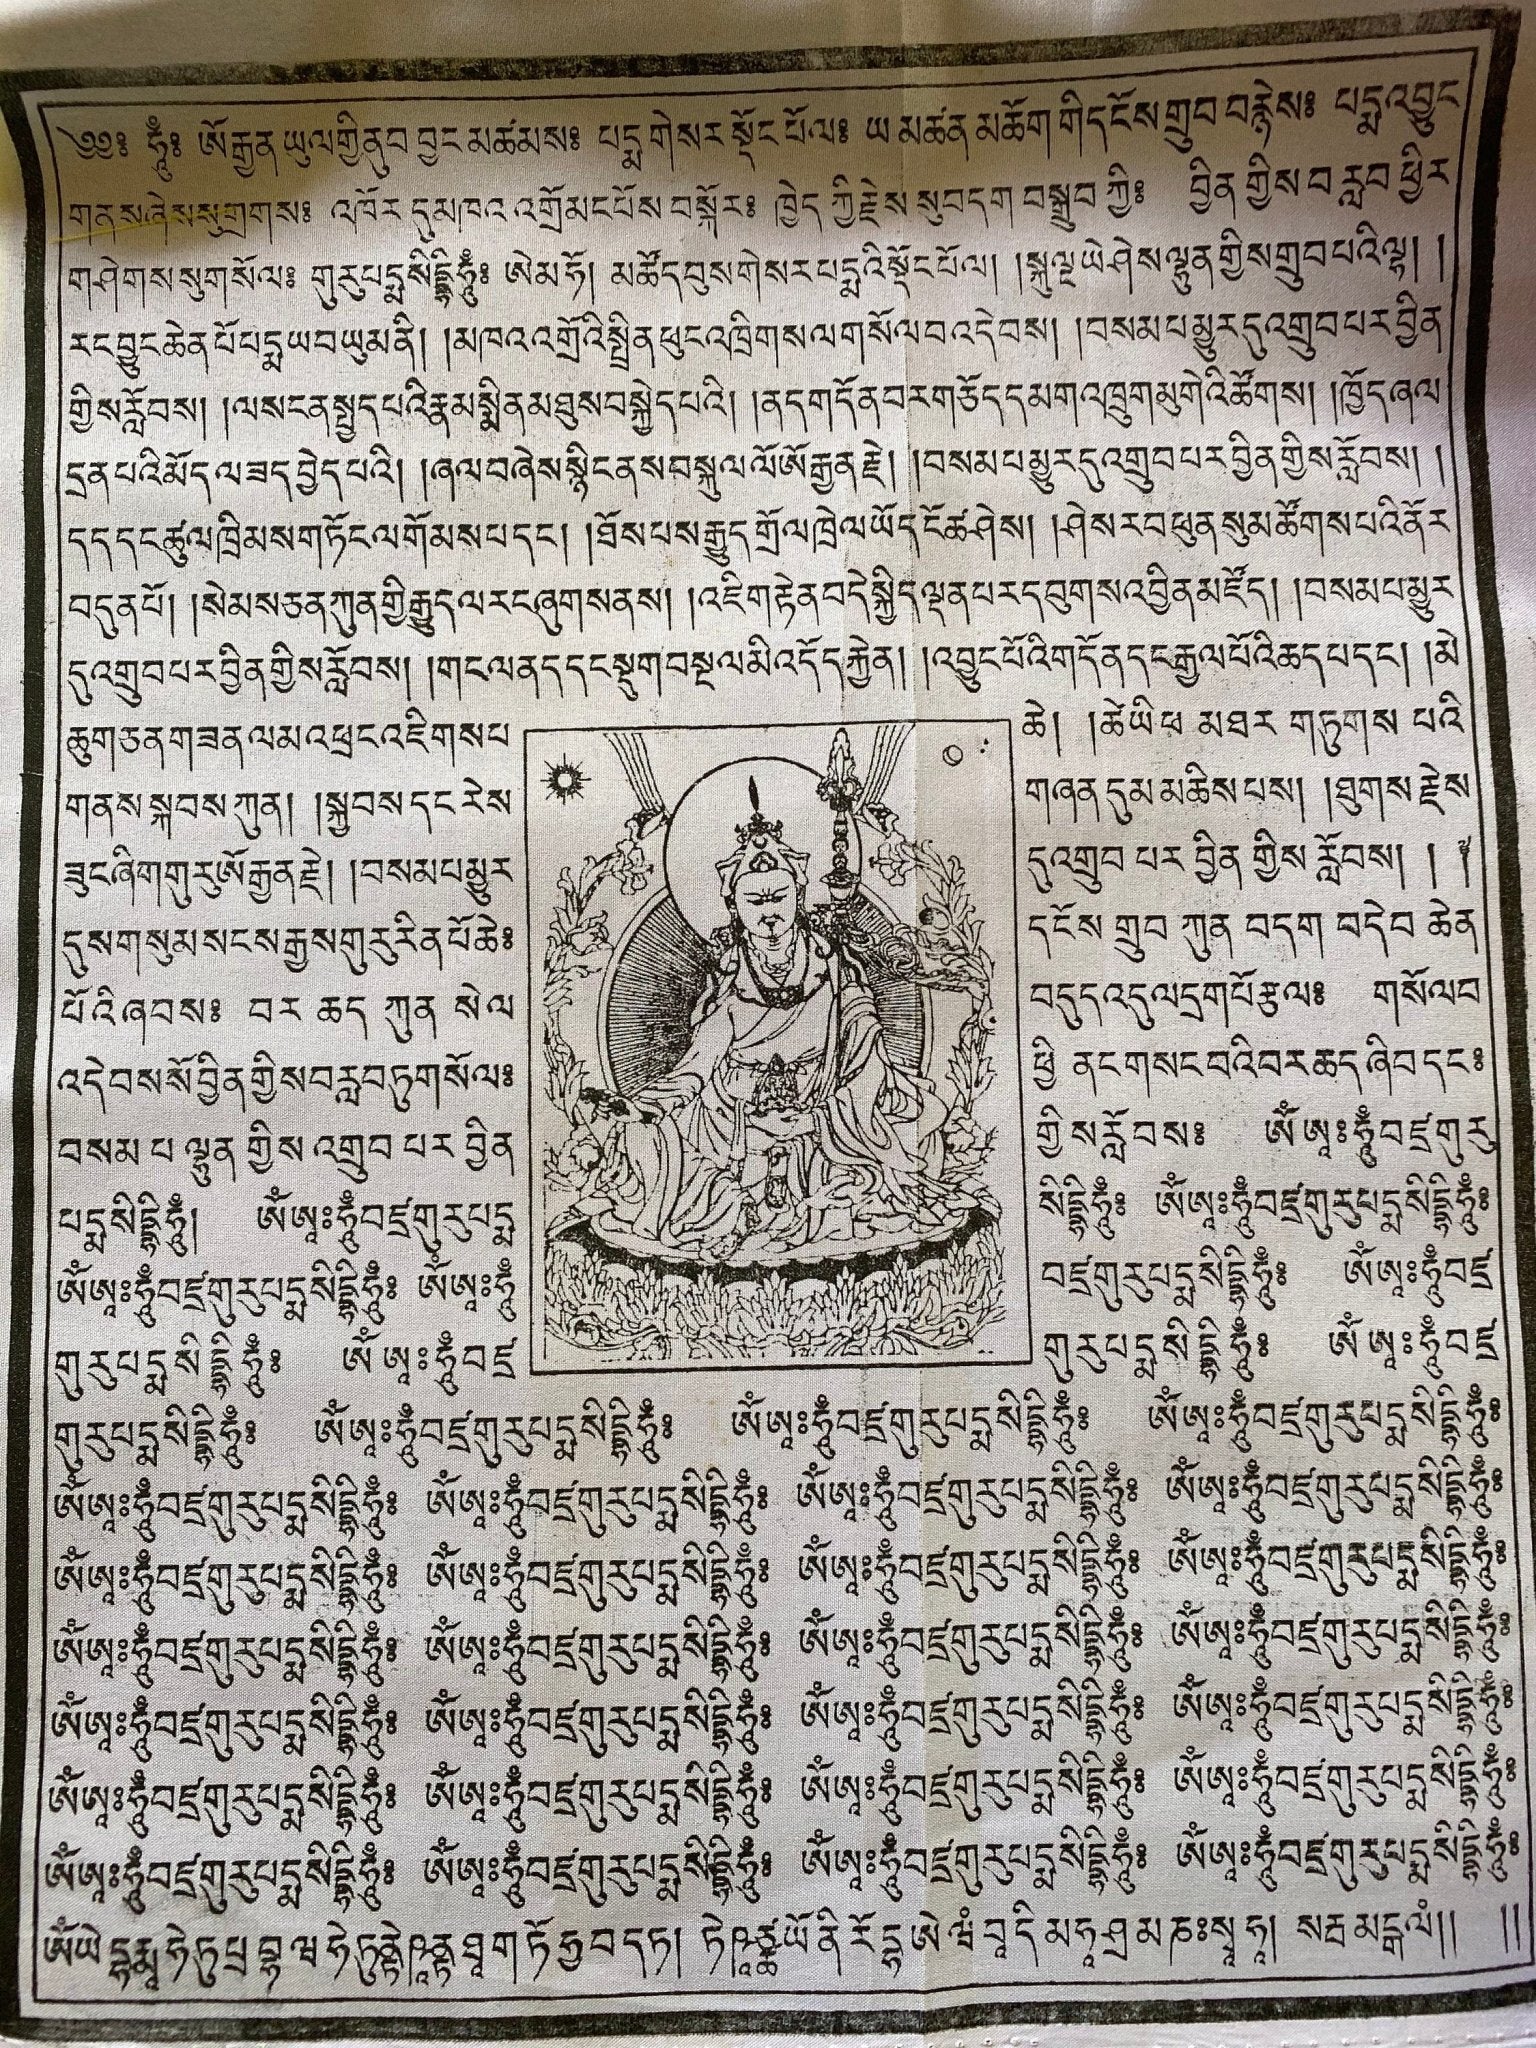 ༄༅༔ ཧཱུྃ༔ ཨོ་རྒྱན་ཡུལ་གྱི་ནུབ་བྱང་མཚམས༔ པདྨ་གེ་སར་སྡོང་པོ་ལ༔ ཡ་མཚན་མཆོག་གི་དངོས་གྲུབ་བརྙེས༔ པདྨ་འབྱུང་
གནས་ཞེས་སུ་གྲགས༔ འཁོར་དུ་མཁའ་འགྲོ་མང་པོས་བསྐོར༔ ཁྱེད་ཀྱི་རྗེས་སུ་བདག་བསྒྲུབ་ཀྱི༔ བྱིན་གྱིས་བརླབ་ཕྱིར་
གཤེགས་སུ་གསོལ༔ གུ་རུ་པདྨ་སིདྡྷི་ཧཱུྃ༔ ཨེ་མ་ཧོ། མཚོ་དབུས་གེ་སར་པདྨའི་སྡོང་པོ་ལ། །སྐུ་ལྔ་ཡེ་ཤེས་ལྷུན་གྱིས་གྲུབ་པའི་ལྷ། །
རང་བྱུང་ཆེན་པོ་པདྨ་ཡབ་ཡུམ་ནི། །མཁའ་འགྲོའི་སྤྲིན་ཕུང་འཁྲིགས་ལ་གསོལ་བ་འདེབས། །བསམ་པ་མྱུར་དུ་འགྲུབ་པར་བྱིན་
གྱིས་རློབས། །ལས་ངན་སྤྱད་པའི་རྣམ་སྨིན་མཐུས་བསྐྱེད་པའི། །ནད་གདོན་བར་གཅོད་དམག་འཁྲུག་མུ་གེའི་ཚོགས། །ཁྱོད་ཞལ་
དྲན་པའི་མོད་ལ་ཟད་བྱེད་པའི། །ཞལ་བཞེས་སྙིང་ནས་བསྐུལ་ལོ་ཨོ་རྒྱན་རྗེ། །བསམ་པ་མྱུར་དུ་འགྲུབ་པར་བྱིན་གྱིས་རློབས། །
དད་དང་ཚུལ་ཁྲིམས་གཏོང་ལ་གོམས་པ་དང་། །ཐོས་པས་རྒྱུད་གྲོལ་ཁྲེལ་ཡོད་ངོ་ཚ་ཤེས། །ཤེས་རབ་ཕུན་སུམ་ཚོགས་པའི་ནོར་
བདུན་པོ། །སེམས་ཅན་ཀུན་གྱི་རྒྱུད་ལ་རང་ཞུགས་ནས། །འཇིག་རྟེན་བདེ་སྐྱིད་ལྡན་པར་དབུགས་འབྱིན་མཛོད། །བསམ་པ་མྱུར་
དུ་འགྲུབ་པར་བྱིན་གྱིས་རློབས། །གང་ལ་ནད་དང་སྡུག་བསྔལ་མི་འདོད་རྐྱེན། །འབྱུང་པོའི་གདོན་དང་རྒྱལ་པོའི་ཆད་པ་དང་། །མེ་
ཆུ་གཅན་གཟན་ལམ་འཕྲང་འཇིགས་པ་ ཆེ། །ཚེ་ཡི་ཕ་མཐར་གཏུགས་པའི་
གནས་སྐབས་ཀུན། །སྐྱབས་དང་རེས་ གཞན་དུ་མ་མཆིས་པས། །ཐུགས་རྗེས་
ཟུང་ཞིག་གུ་རུ་ཨོ་རྒྱན་རྗེ། །བསམ་པ་མྱུར་ དུ་འགྲུབ་པར་བྱིན་གྱིས་རློབས། །
དུས་གསུམ་སངས་རྒྱས་གུ་རུ་རིན་པོ་ཆེ༔ དངོས་གྲུབ་ཀུན་བདག་བདེ་བ་ཆེན་
པོའི་ཞབས༔ བར་ཆད་ཀུན་སེལ་ བདུད་འདུལ་དྲག་པོ་རྩལ༔ གསོལ་བ་
འདེབས་སོ་བྱིན་གྱིས་བརླབ་ཏུ་གསོལ༔ ཕྱི་ནང་གསང་བའི་བར་ཆད་ཞི་བ་དང་༔
བསམ་པ་ལྷུན་གྱིས་འགྲུབ་པར་བྱིན་ གྱིས་རློབས༔ ཨོཾ་ཨཱཿཧཱུྃ་བཛྲ་གུ་རུ་
པདྨ་སིདྡྷི་ཧཱུྃ། ཨོཾ་ཨཱཿཧཱུྃ་བཛྲ་གུ་རུ་པདྨ་ སིདྡྷི་ཧཱུྃ༔ ཨོཾ་ཨཱཿཧཱུྃ་བཛྲ་གུ་རུ་པདྨ་སིདྡྷི་ཧཱུྃ༔
ཨོཾ་ཨཱཿཧཱུྃ་བཛྲ་གུ་རུ་པདྨ་སིདྡྷི་ཧཱུྃ༔ ཨོཾ་ཨཱཿཧཱུྃ་ བཛྲ་གུ་རུ་པདྨ་སིདྡྷི་ཧཱུྃ༔ ཨོཾ་ཨཱཿཧཱུྃ་བཛྲ་
གུ་རུ་པདྨ་སིདྡྷི་ཧཱུྃ༔ ཨོཾ་ཨཱཿཧཱུྃ་བཛྲ་ གུ་རུ་པདྨ་སིདྡྷི་ཧཱུྃ༔ ཨོཾ་ཨཱཿཧཱུྃ་བཛྲ་
གུ་རུ་པདྨ་སིདྡྷི་ཧཱུྃ༔ ཨོཾ་ཨཱཿཧཱུྃ་བཛྲ་གུ་རུ་པདྨ་སིདྡྷི་ཧཱུྃ༔ ཨོཾ་ཨཱཿཧཱུྃ་བཛྲ་གུ་རུ་པདྨ་སིདྡྷི་ཧཱུྃ༔ ཨོཾ་ཨཱཿཧཱུྃ་བཛྲ་གུ་རུ་པདྨ་སིདྡྷི་ཧཱུྃ༔
ཨོཾ་ཨཱཿཧཱུྃ་བཛྲ་གུ་རུ་པདྨ་སིདྡྷི་ཧཱུྃ༔ ཨོཾ་ཨཱཿཧཱུྃ་བཛྲ་གུ་རུ་པདྨ་སིདྡྷི་ཧཱུྃ༔ ཨོཾ་ཨཱཿཧཱུྃ་བཛྲ་གུ་རུ་པདྨ་སིདྡྷི་ཧཱུྃ༔ ཨོཾ་ཨཱཿཧཱུྃ་བཛྲ་གུ་རུ་པདྨ་སིདྡྷི་ཧཱུྃ༔
ཨོཾ་ཨཱཿཧཱུྃ་བཛྲ་གུ་རུ་པདྨ་སིདྡྷི་ཧཱུྃ༔ ཨོཾ་ཨཱཿཧཱུྃ་བཛྲ་གུ་རུ་པདྨ་སིདྡྷི་ཧཱུྃ༔ ཨོཾ་ཨཱཿཧཱུྃ་བཛྲ་གུ་རུ་པདྨ་སིདྡྷི་ཧཱུྃ༔ ཨོཾ་ཨཱཿཧཱུྃ་བཛྲ་གུ་རུ་པདྨ་སིདྡྷི་ཧཱུྃ༔
ཨོཾ་ཨཱཿཧཱུྃ་བཛྲ་གུ་རུ་པདྨ་སིདྡྷི་ཧཱུྃ༔ ཨོཾ་ཨཱཿཧཱུྃ་བཛྲ་གུ་རུ་པདྨ་སིདྡྷི་ཧཱུྃ༔ ཨོཾ་ཨཱཿཧཱུྃ་བཛྲ་གུ་རུ་པདྨ་སིདྡྷི་ཧཱུྃ༔ ཨོཾ་ཨཱཿཧཱུྃ་བཛྲ་གུ་རུ་པདྨ་སིདྡྷི་ཧཱུྃ༔
ཨོཾ་ཨཱཿཧཱུྃ་བཛྲ་གུ་རུ་པདྨ་སིདྡྷི་ཧཱུྃ༔ ཨོཾ་ཨཱཿཧཱུྃ་བཛྲ་གུ་རུ་པདྨ་སིདྡྷི་ཧཱུྃ༔ ཨོཾ་ཨཱཿཧཱུྃ་བཛྲ་གུ་རུ་པདྨ་སིདྡྷི་ཧཱུྃ༔ ཨོཾ་ཨཱཿཧཱུྃ་བཛྲ་གུ་རུ་པདྨ་སིདྡྷི་ཧཱུྃ༔
ཨོཾ་ཨཱཿཧཱུྃ་བཛྲ་གུ་རུ་པདྨ་སིདྡྷི་ཧཱུྃ༔ ཨོཾ་ཨཱཿཧཱུྃ་བཛྲ་གུ་རུ་པདྨ་སིདྡྷི་ཧཱུྃ༔ ཨོཾ་ཨཱཿཧཱུྃ་བཛྲ་གུ་རུ་པདྨ་སིདྡྷི་ཧཱུྃ༔ ཨོཾ་ཨཱཿཧཱུྃ་བཛྲ་གུ་རུ་པདྨ་སིདྡྷི་ཧཱུྃ༔
ཨོཾ་ཨཱཿཧཱུྃ་བཛྲ་གུ་རུ་པདྨ་སིདྡྷི་ཧཱུྃ༔ ཨོཾ་ཨཱཿཧཱུྃ་བཛྲ་གུ་རུ་པདྨ་སིདྡྷི་ཧཱུྃ༔ ཨོཾ་ཨཱཿཧཱུྃ་བཛྲ་གུ་རུ་པདྨ་སིདྡྷི་ཧཱུྃ༔ ཨོཾ་ཨཱཿཧཱུྃ་བཛྲ་གུ་རུ་པདྨ་སིདྡྷི་ཧཱུྃ༔
ཨོཾ་ཡེ་དྷརྨཱ་ཧེ་ཏུ་པྲ་བྷ་ཝ་ཧེ་ཏུནྟེཥཱནྟ་ཐཱ་ག་ཏོ་ཧྱ་བ་དཏ། ཏེཥཱཉྩ་ཡོ་ནི་རོ་དྷ་ཨེ་ཝཾ་བཱ་དི་མ་ཧཱ་ཤྲ་མ་ཎཿསྭཱ་ཧཱ། སརྦ་མངྒ་ལཾ།། །།